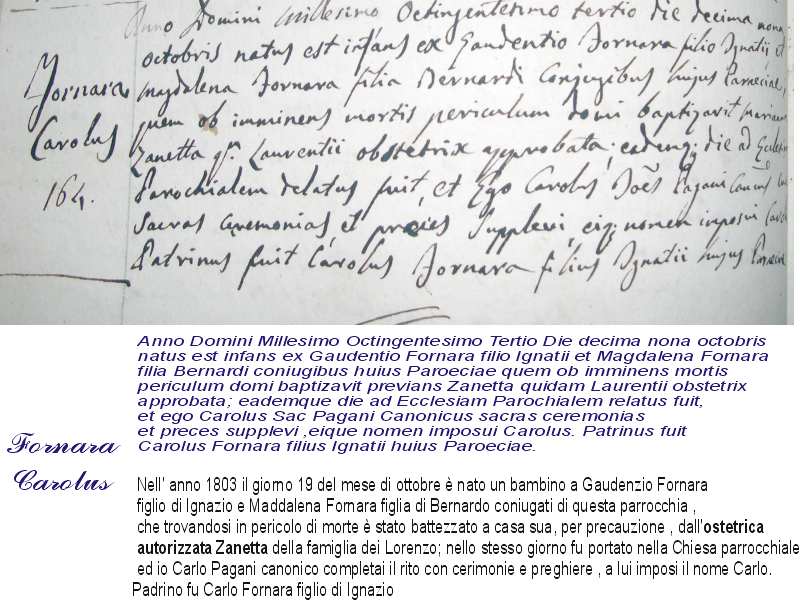 Anno Domini Millesimo Octingentesimo tertio die decima nona
octobris natus est infans ex Gaudentio Fornara filio Ignatii, et
Magdalena Fornara filia Bernardi Conjugibus hujus Parœciæ,
quem ob imminens mortis periculum domi baptizavit Mariam
Zanetta qm. Laurentii obstetrix approbata; eademq; die ad Eccles
Parochialem delatus fuit, et Ego Carolus Joes Pagani Cancus
Sacras Ceremonias, et preces Supplevi, eiq; nomen imposui Carol
Patrinus fuit Carolus Fornara filius Ignatii hujus Parœciæ
Fornara
Carolus
164.
Anno Domini Millesimo Octingentesimo Tertio Die decima nona octobris
natus est infans ex Gaudentio Fornara filio Ignatii et Magdalena Fornara
filia Bernardi coniugibus huius Paroeciae quem ob imminens mortis
periculum domi baptizavit previans Zanetta quidam Laurentii obstetrix
approbata; eademque die ad Ecclesiam Parochialem relatus fuit,
et ego Carolus Sac Pagani Canonicus sacras ceremonias
et preces supplevi ,eique nomen imposui Carolus. Patrinus fuit
Carolus Fornara filius Ignatii huius Paroeciae.
Fornara
Carolus
Nell' anno 1803 il giorno 19 del mese di ottobre è nato un bambino a Gaudenzio Fornara
figlio di Ignazio e Maddalena Fornara figlia di Bernardo coniugati di questa parrocchia ,
che trovandosi in pericolo di morte è stato battezzato a casa sua, per precauzione , dall'ostetrica
autorizzata Zanetta della famiglia dei Lorenzo; nello stesso giorno fu portato nella Chiesa parrocchiale
ed io Carlo Pagani canonico completai il rito con cerimonie e preghiere , a lui imposi il nome Carlo.
Padrino fu Carlo Fornara figlio di Ignazio